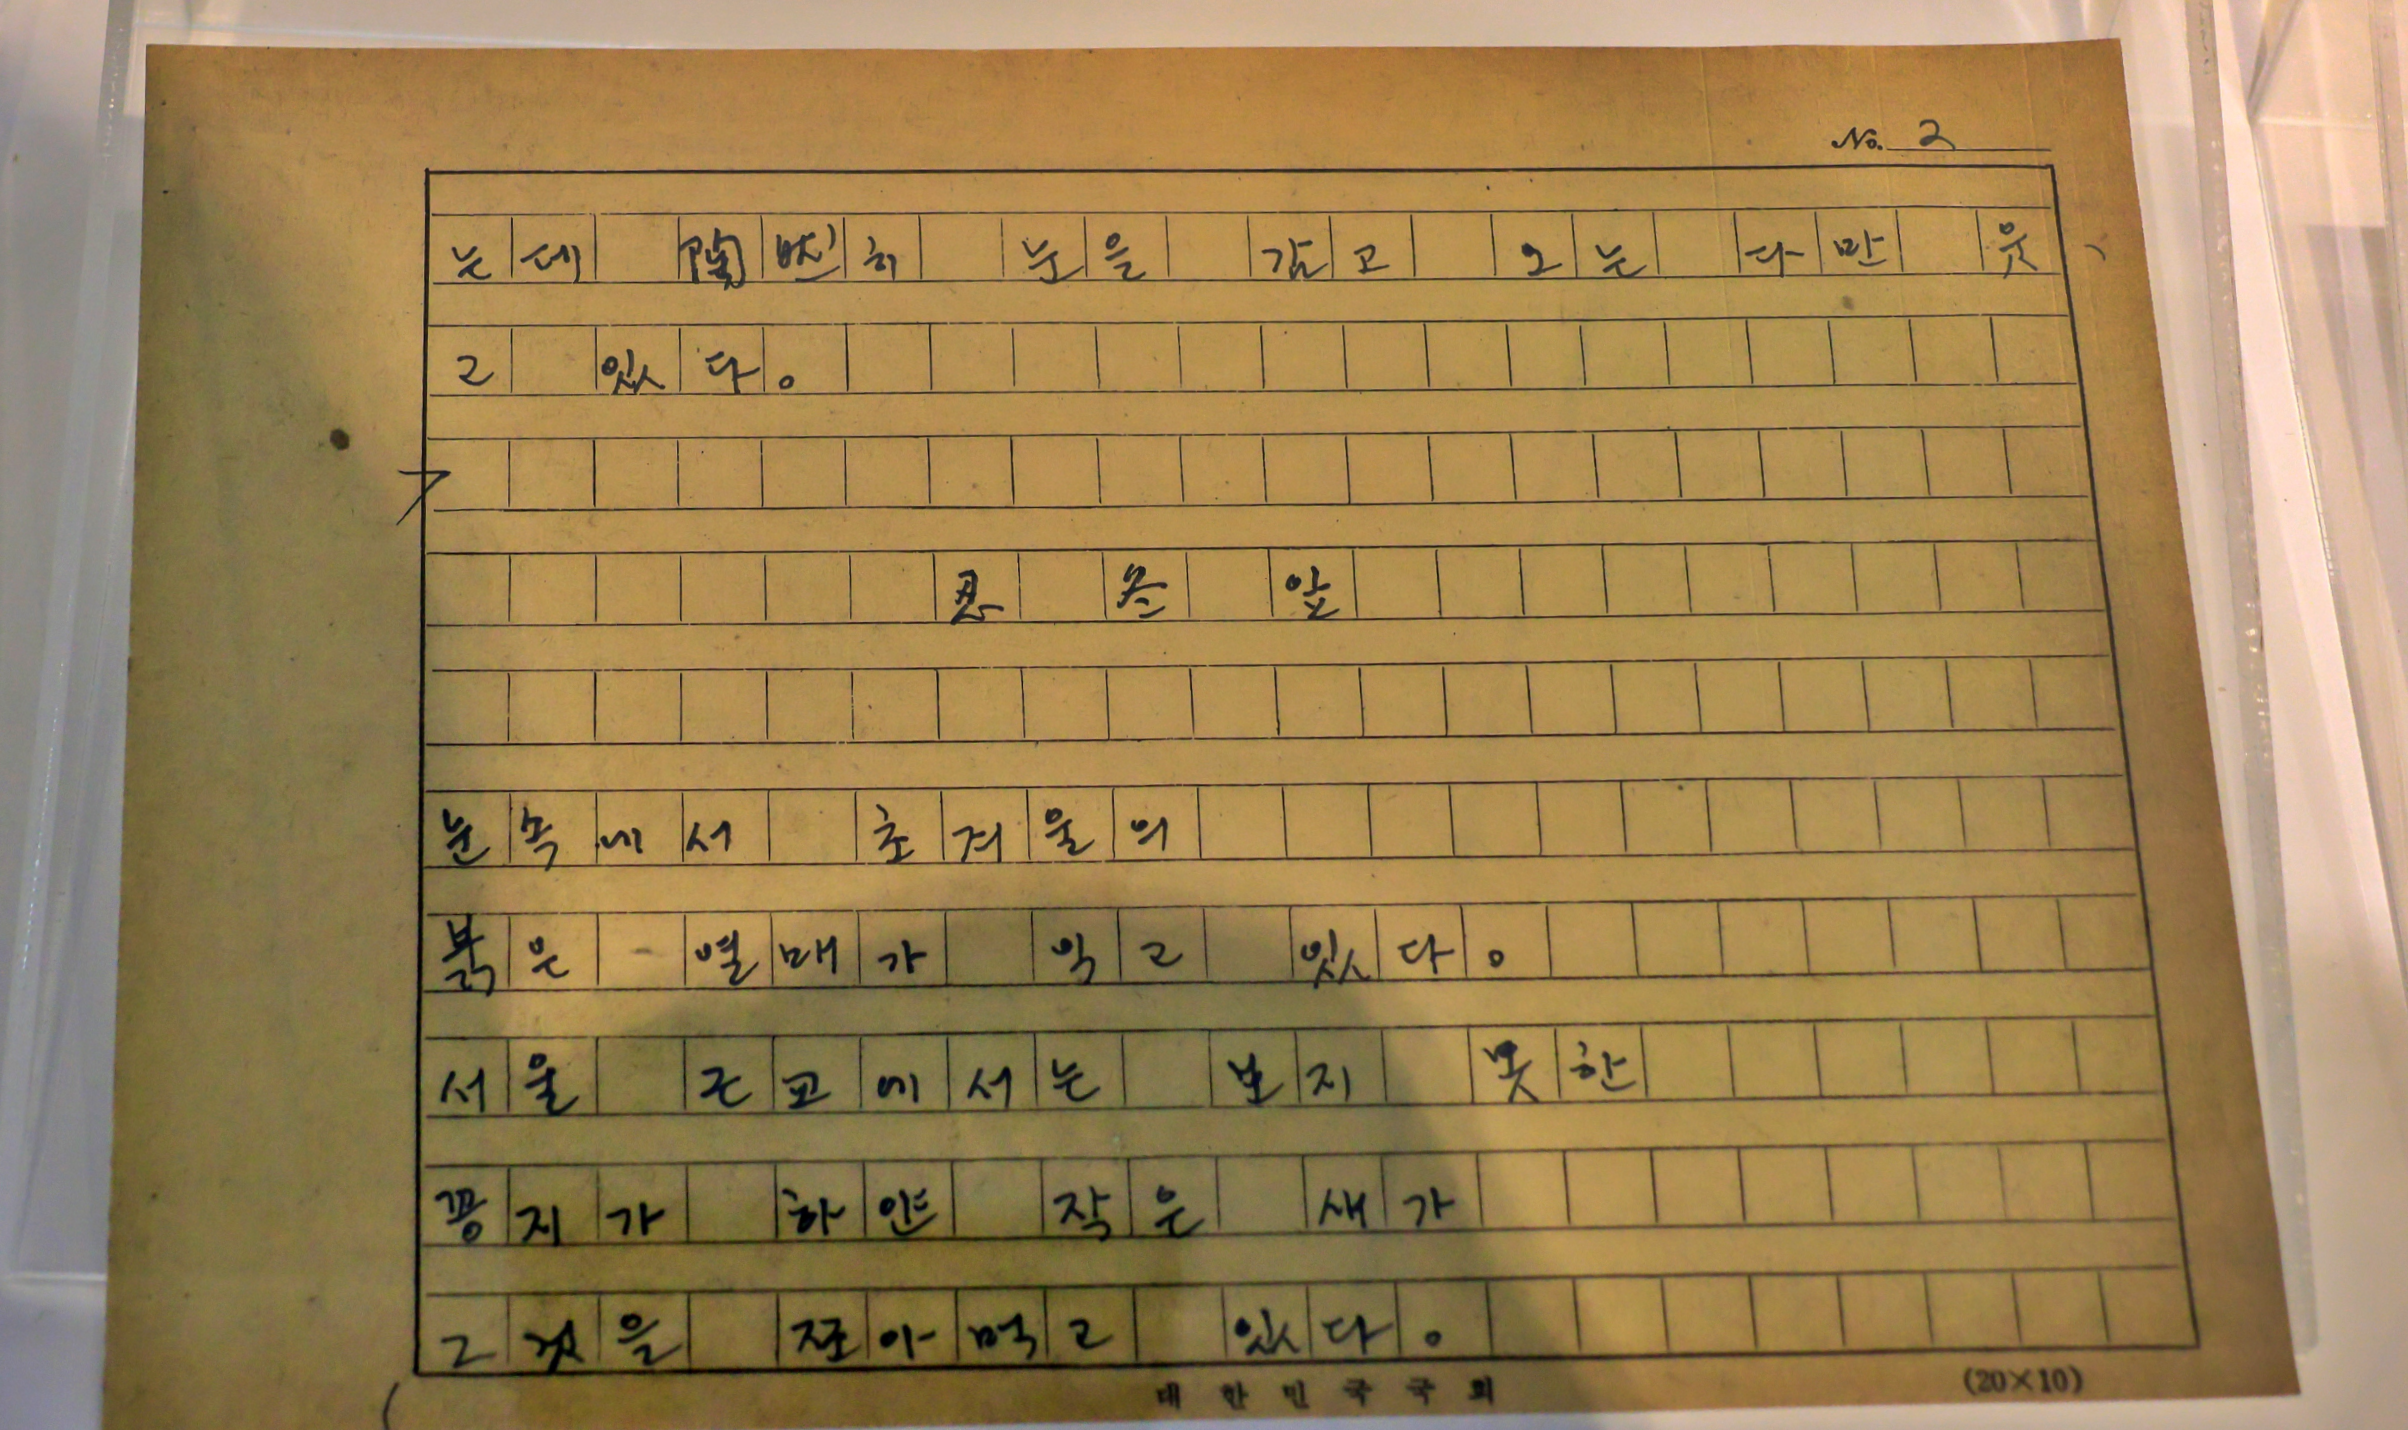 No. 2
는데 陶然히 눈을 감고 그는 다만 웃
고 있다。
忍 冬 잎
눈속에서 초겨울의
붉은 열매가 익고 있다。
서울 근교에서는 보지 못한
꽁지가 하얀 작은 새가
그것을 쪼아먹고 있다。
대한민국국회
(20×10)